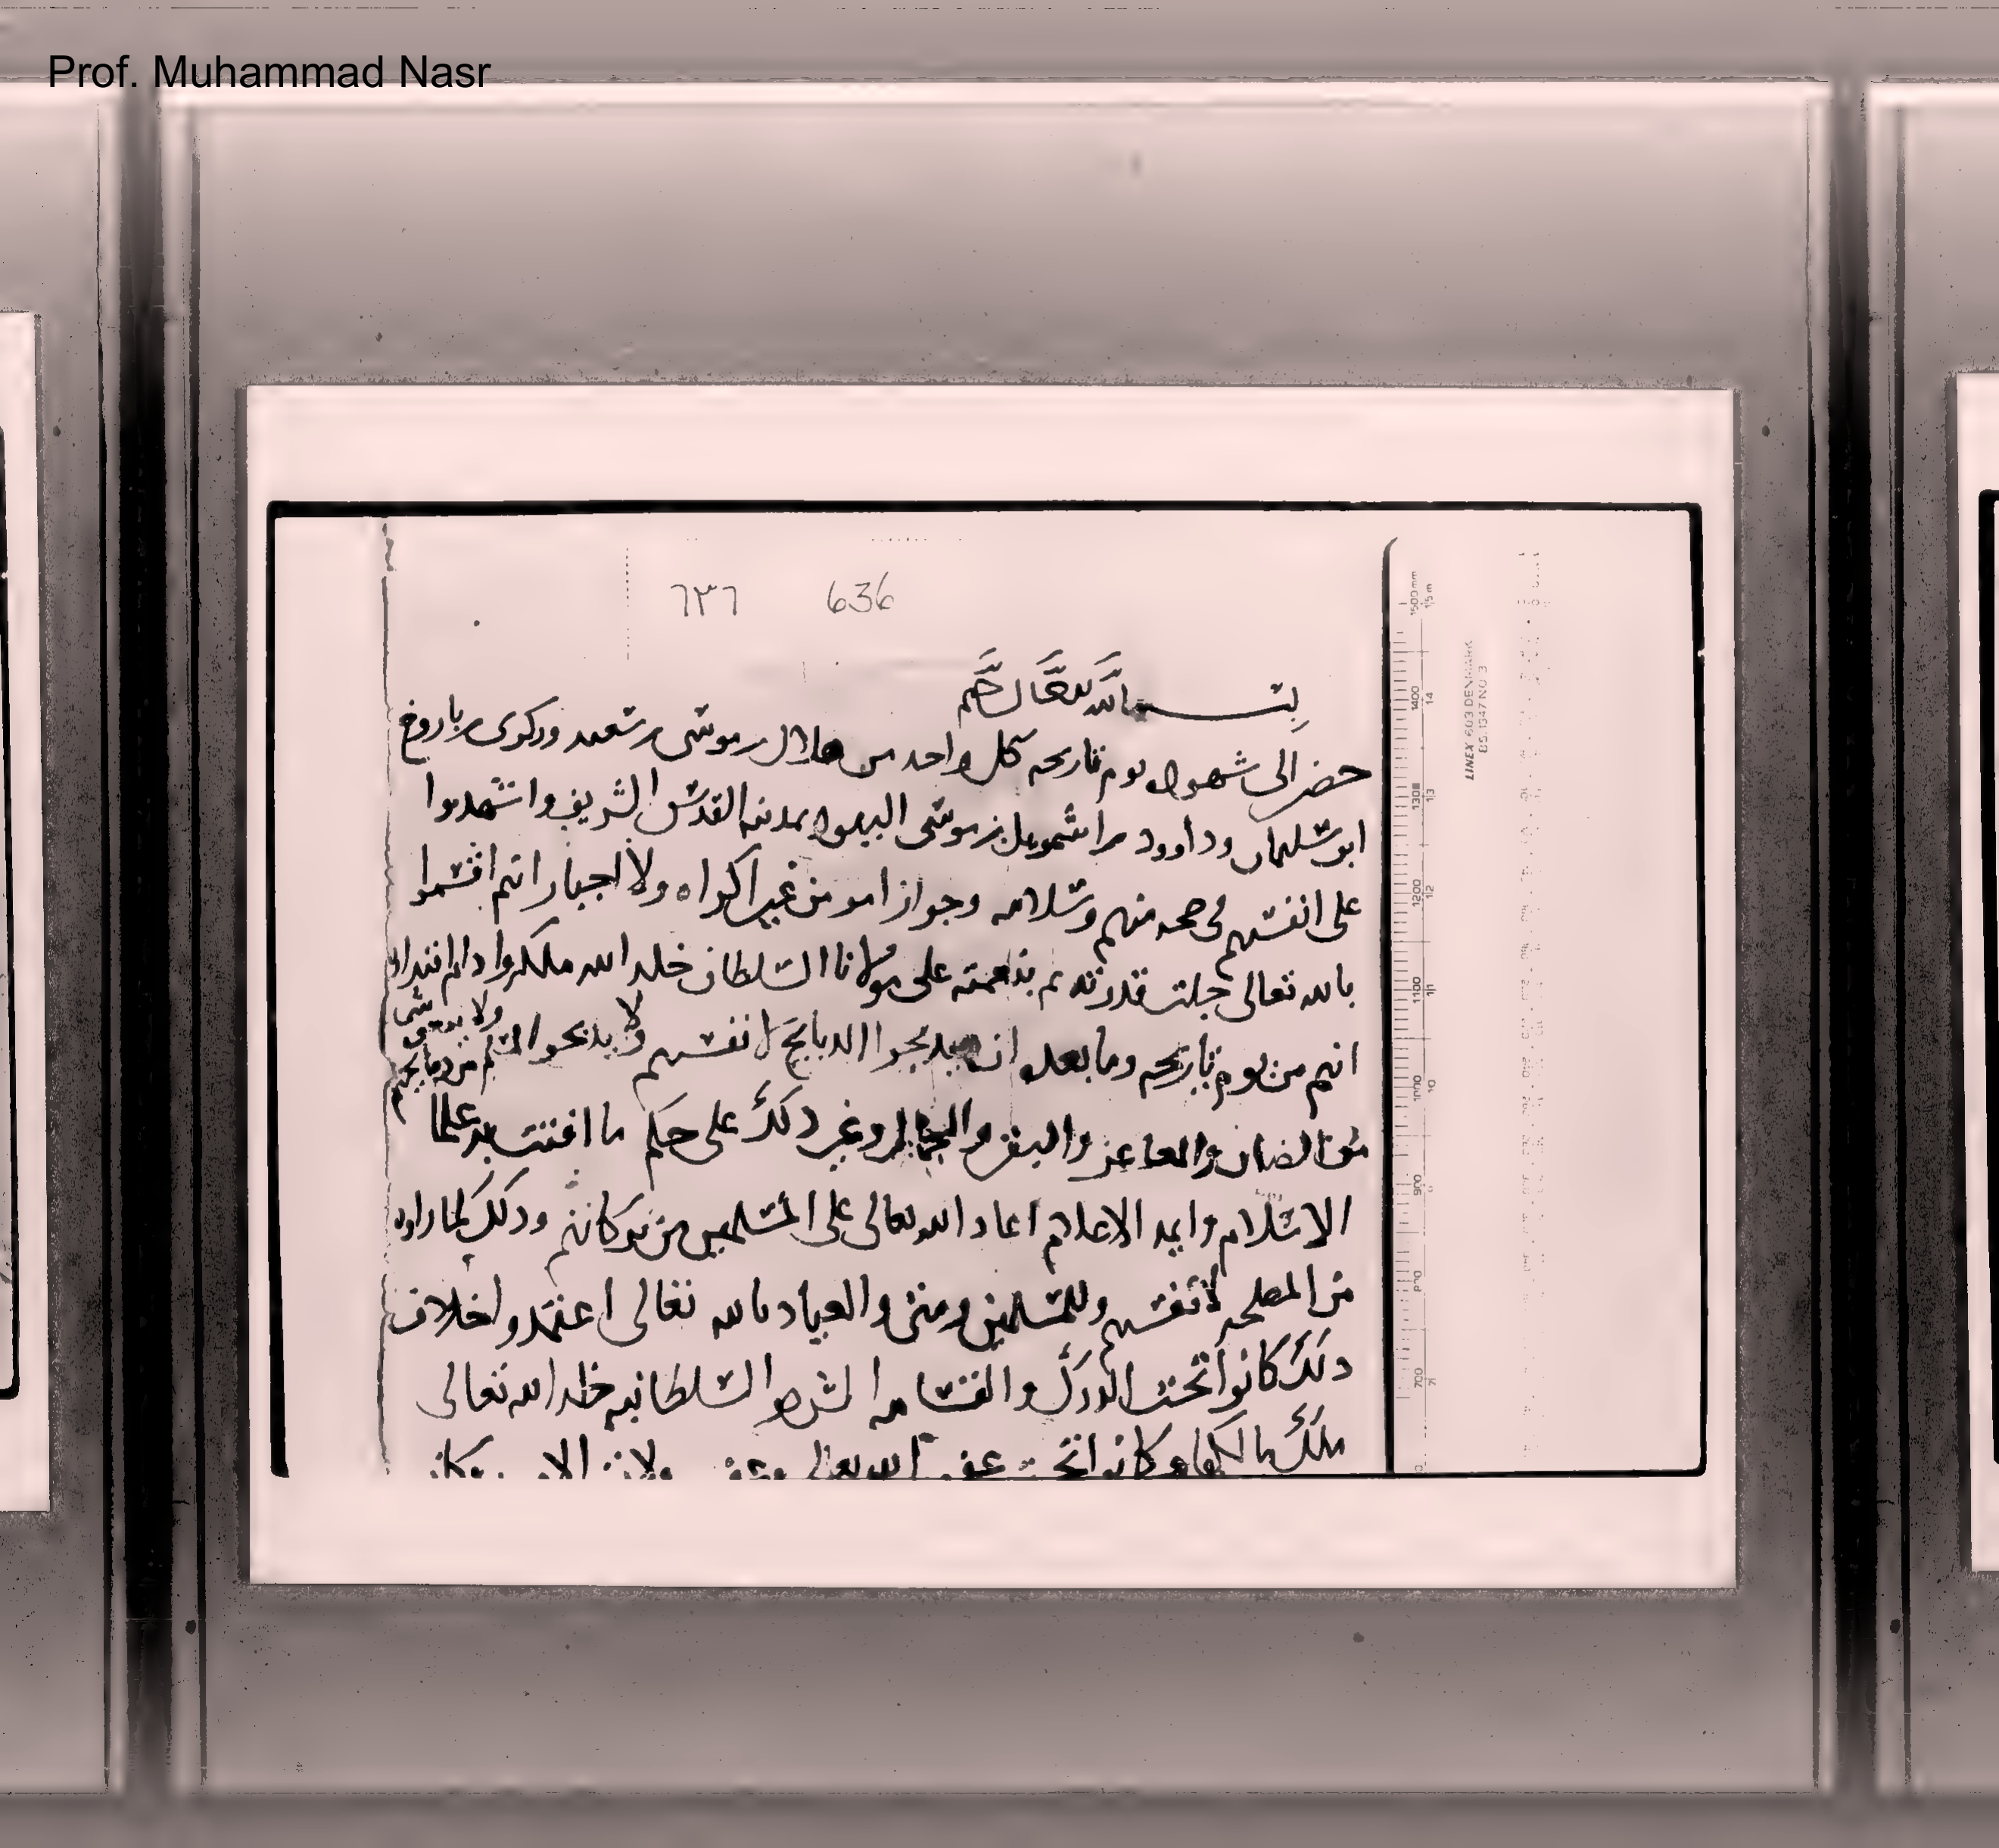 Prof. Muhammad Nasr
٦٣٦ 636
بسم الله الرحمن الرحيم
حضر الى شهوده يوم تاريخه كل واحد من هلال بن موسى بن سعيد وزكرى بن باروخ
ابو سليمان وداوود بن اشمويل بن موسى اليهود بمدينة القدس الشريف واشهدوا
على انفسهم في صحه منهم وسلامه وجواز امر من غير اكراه ولا اجبار انهم اقسموا
بالله تعالى جلت قدرته ثم بنعمته على مولانا السلطان خلد الله ملكه وادام اقتداره
انهم من يوم تاريخه وما بعده ان يذبحوا الذبايح لانفسهم ولا يذبحوا
ولا شى
من ذبايحهم
من الضان والماعز والبقر والجمال وغير ذلك على حكم ما افتت به علما
الاسلام وايمة الاعلام اعاد الله تعالى على المسلمين من بركاتهم وذلك لما راوه
من المصلحه لانفسهم وللمسلمين ومتى والعياذ بالله تعالى اعتمدوا خلاف
ذلك كانوا تحت الدرك والقسامه الشريفه السلطانيه خلد الله تعالى
ملك مالكها وكانوا تحت